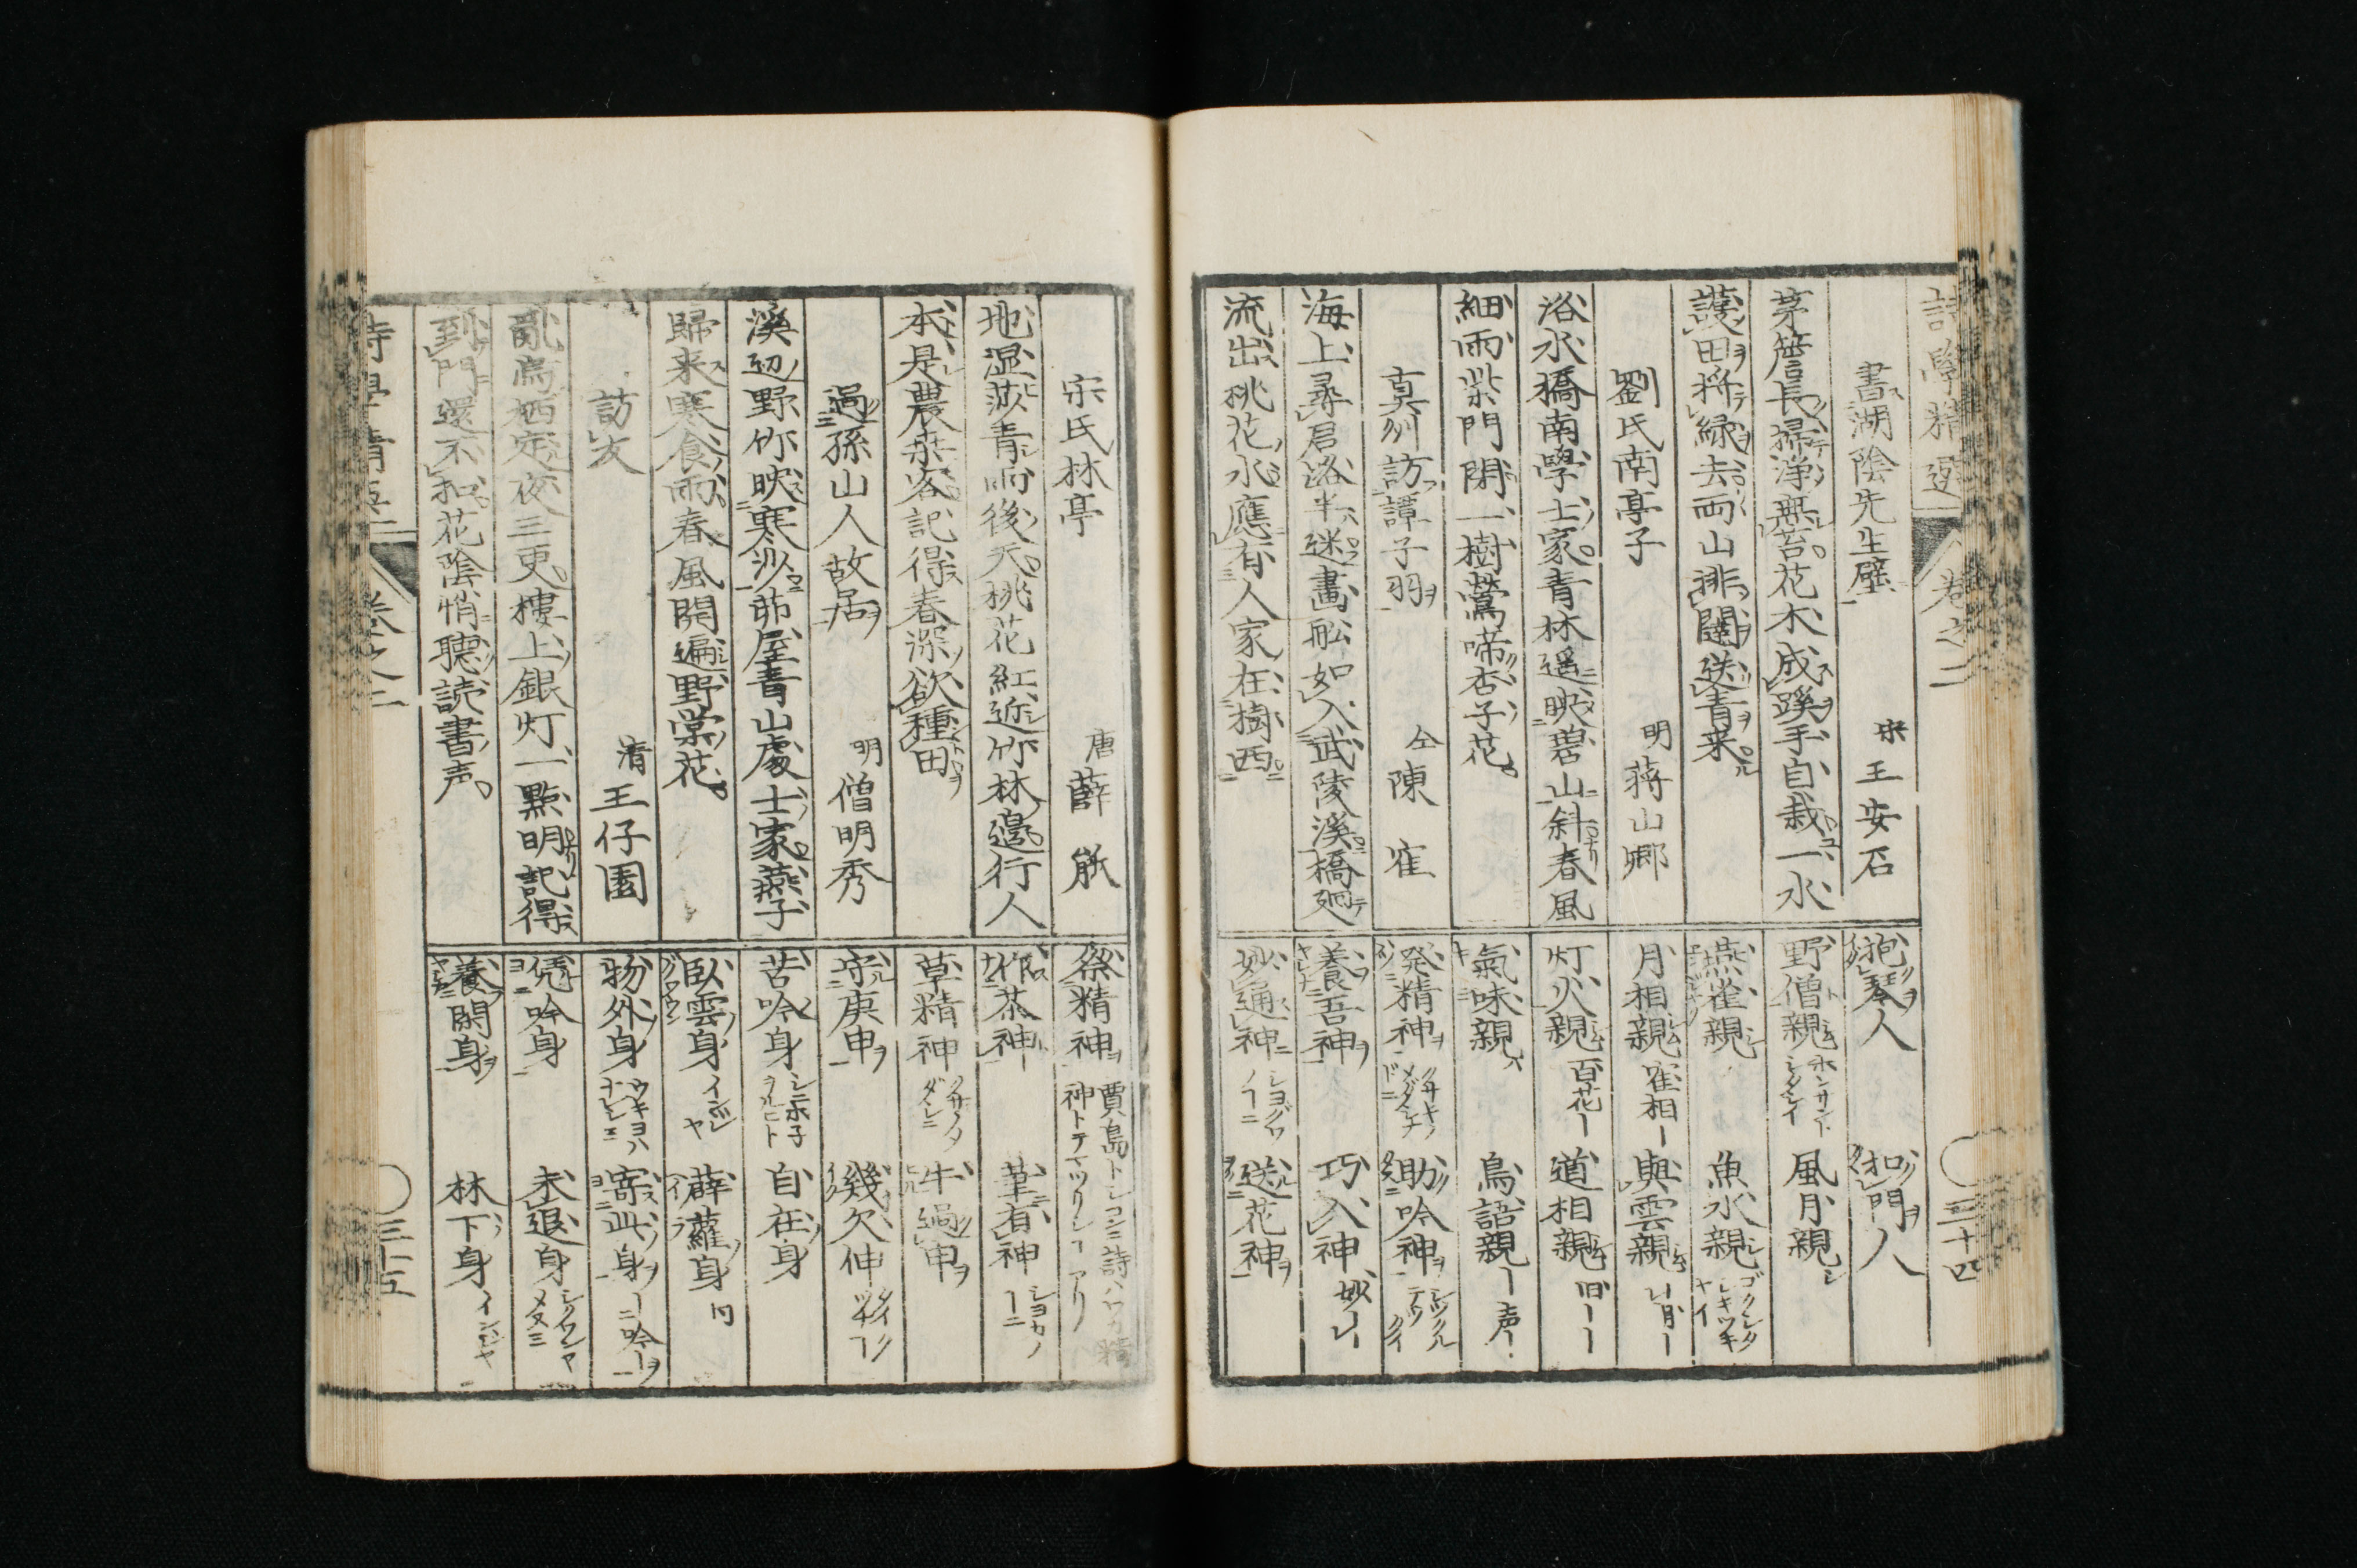 詩學精選 卷之二 三十四
書湖陰先生壁 宋 王安石
茅簷長掃淨無苔花木成蹊手自栽一水
護田将緑去両山排闥送青来
劉氏南亭子 明 蒋山卿
浴水橋南學士家青林遥映碧山斜春風
細雨柴門閉一樹鶯啼杏子花
真州訪譚子羽 仝 陳寉
海上尋君路半迷畫舩如入武陵溪橋廻
流出桃花水應有人家在樹西
抱琴人 扣門人
野僧親 風月親
燕雀親 魚水親
月相親 寉相ー 與雲親
灯火親 百花ー 道相親 旧ーー
氣味親 鳥語親 ー声ー
発精神 助吟神
養吾神 巧入神 妙ーレ
妙通神 送花神
宗氏林亭 唐 薛能
地湿莎青雨後天桃花紅近竹林邉行人
本是農桒客記得春深欲種田
過孫山人故居 明 僧明秀
溪辺野竹映寒沙茆屋青山處士家燕子
歸来寒食雨春風開遍野棠花
訪友 清 王仔園
亂烏栖定夜三更楼上銀灯一點明記得
到門還不扣花陰悄聴読書声
祭精神 賈島トシコシニ詩ハワカ精神トテマツリシーアリ
作茶神 筆有神
草精神 牛過申
守庚申 幾欠伸
苦吟身 自在身
臥雲身 インジヤ 薜蘿身 同
物外身 寄此身
凭吟身 未退身
養閑身 林下身 インジヤ
詩學精選 卷之二 三十五